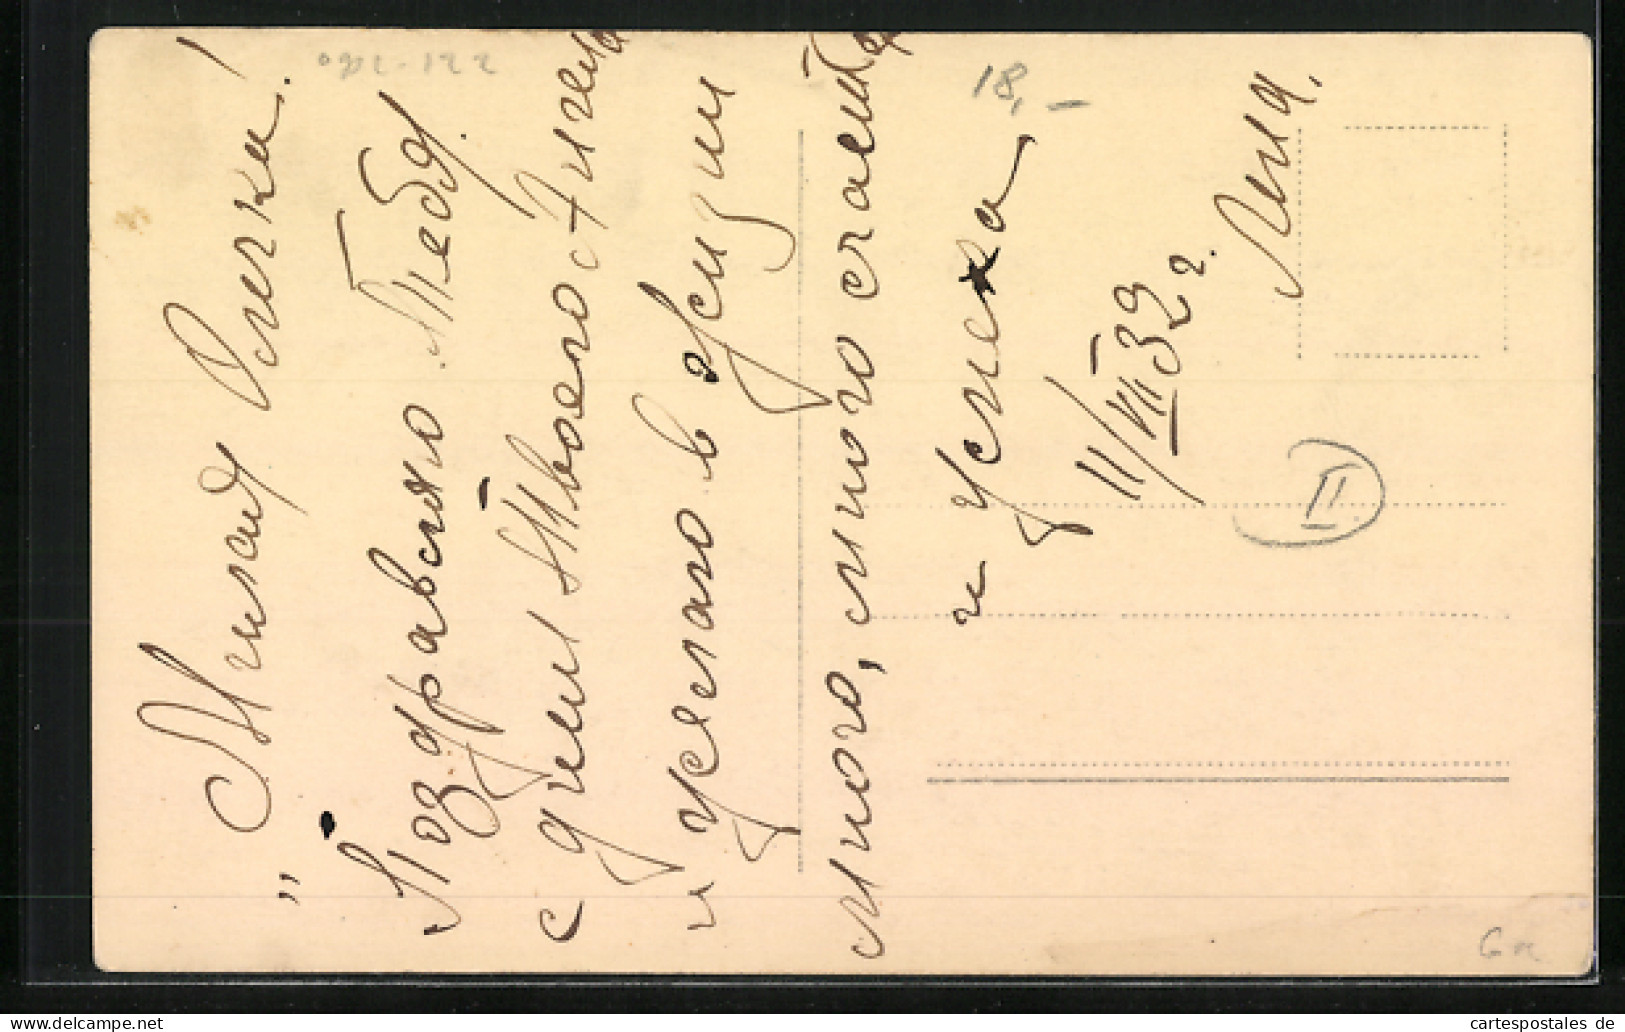 "Милая Олечка!
Поздравляю Тебя
с днем Твоего Ангела
и желаю в жизни
много, много счастья
и успеха,
11/VII 32 г.
Лиля.
18,-
II
cartespostales de